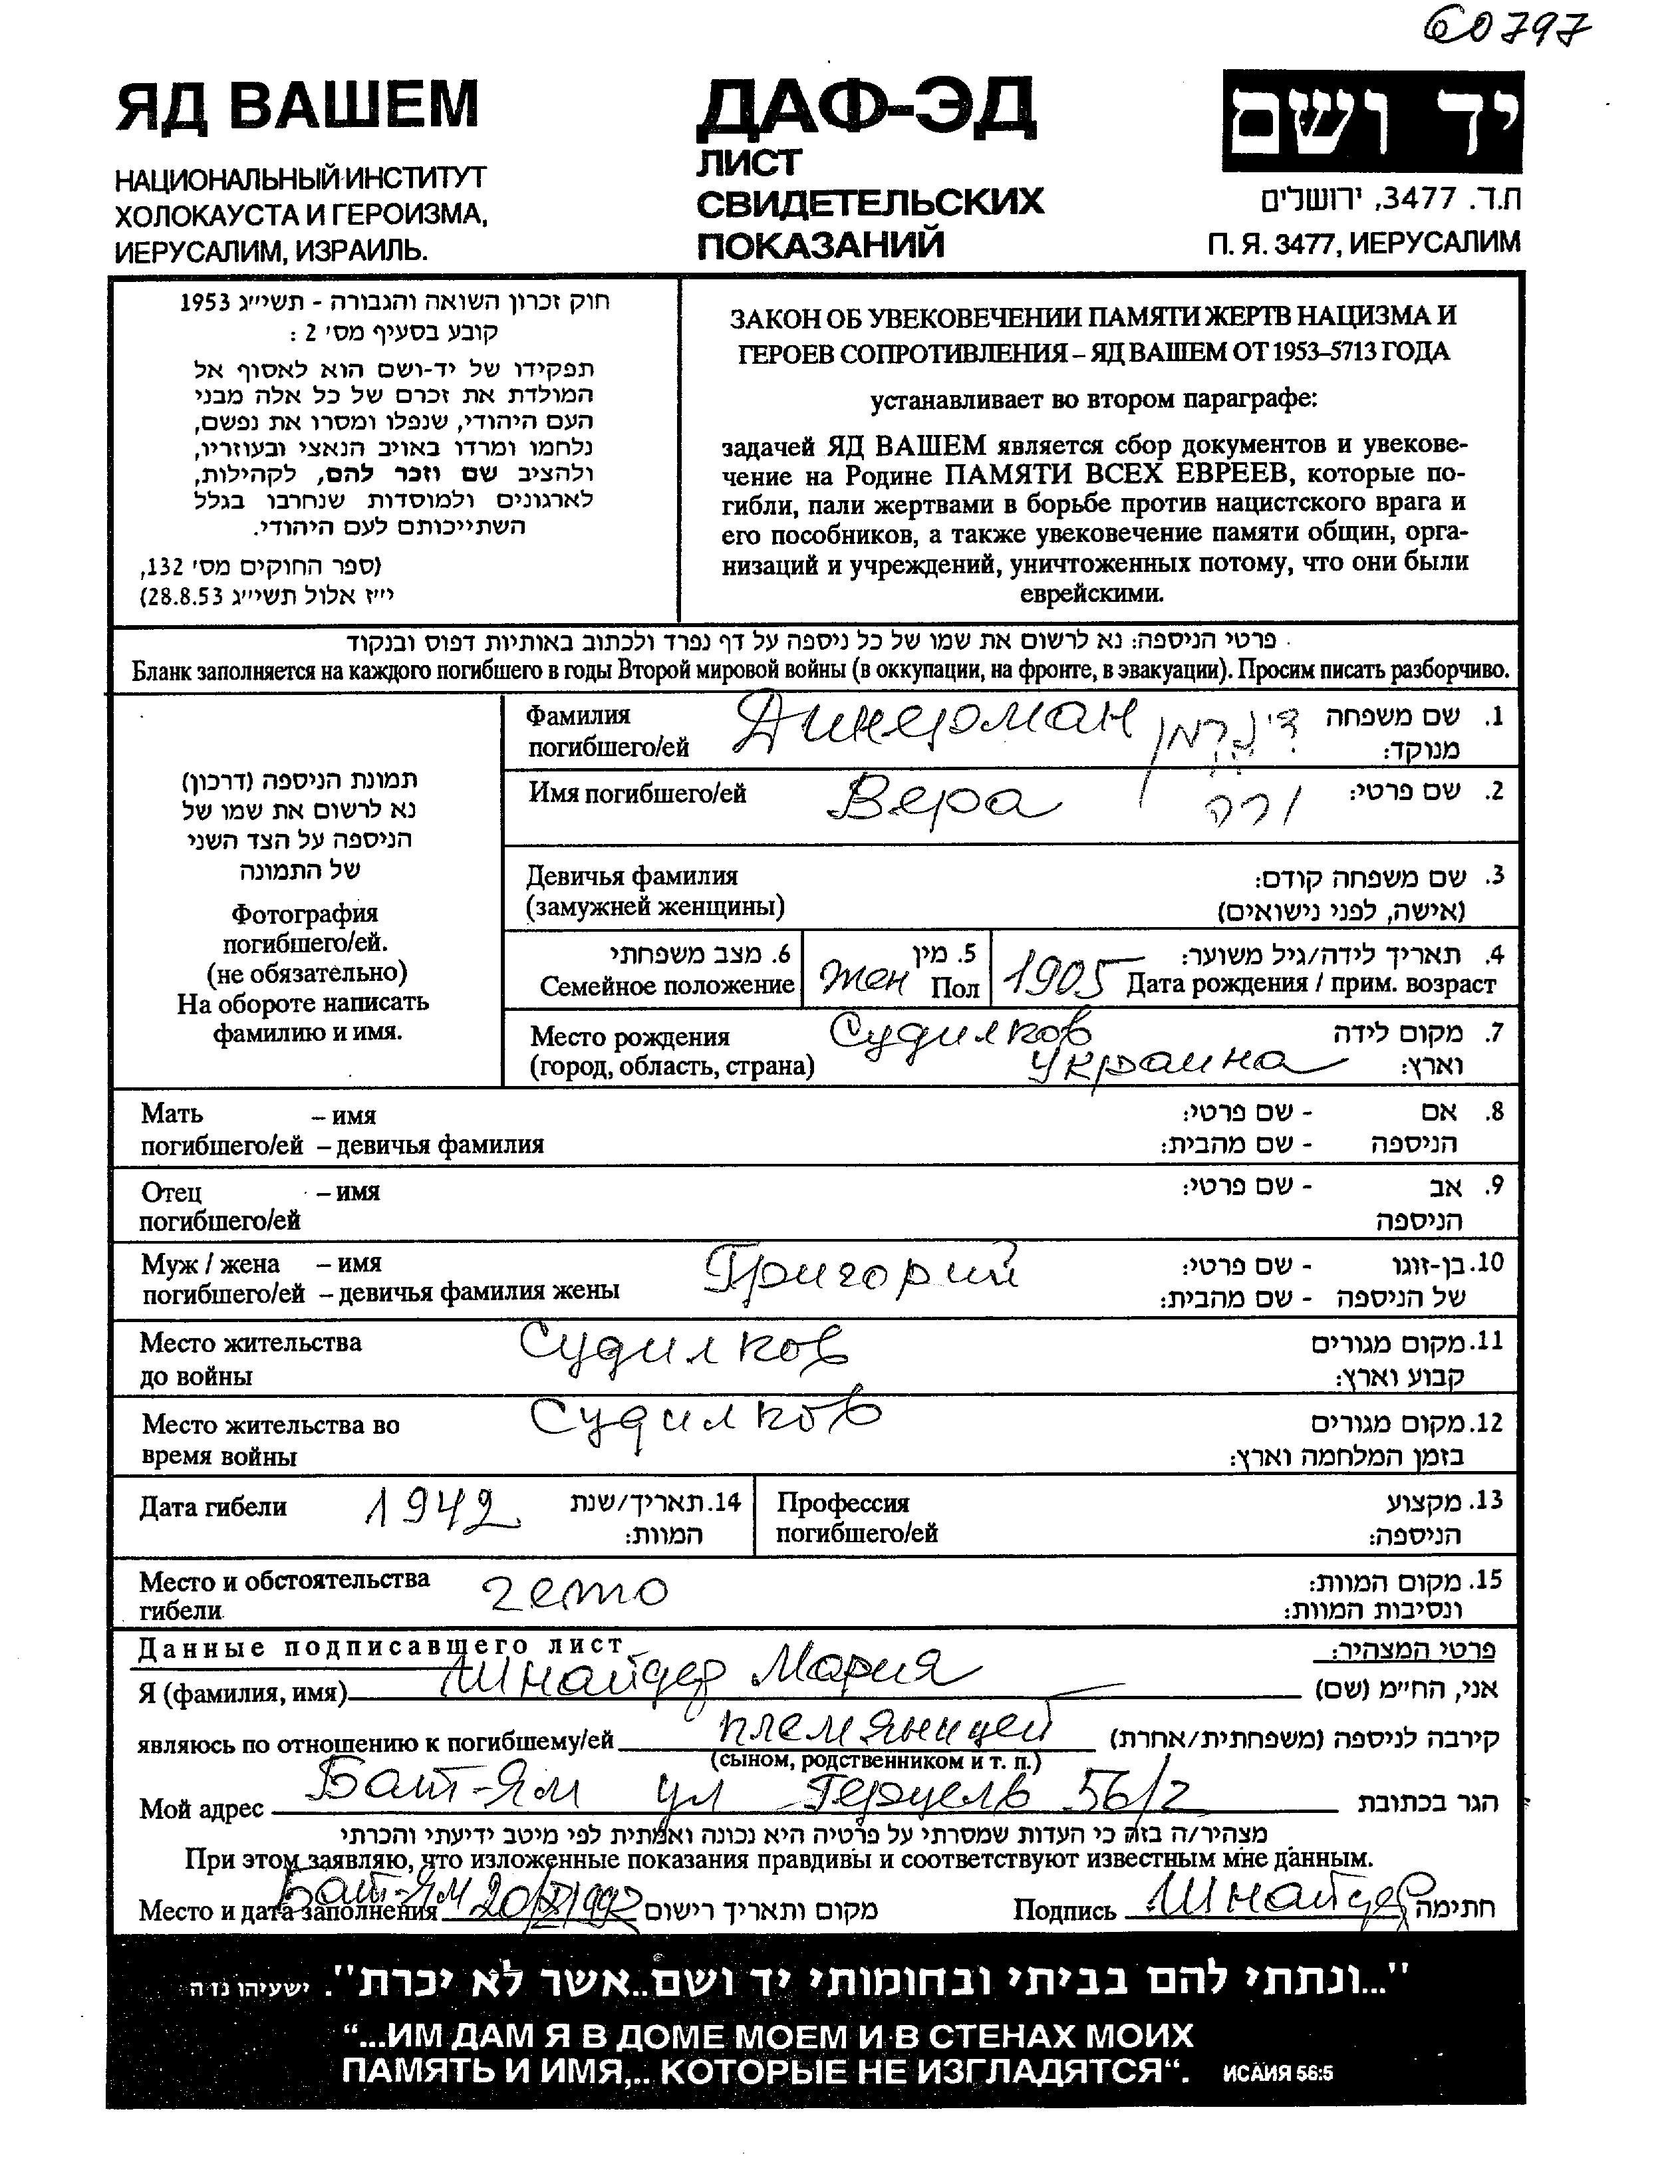 60797
ЯД ВАШЕМ
НАЦИОНАЛЬНЫЙ ИНСТИТУТ
ХОЛОКАУСТА И ГЕРОИЗМА,
ИЕРУСАЛИМ, ИЗРАИЛЬ.
ДАФ-ЭД
ЛИСТ
СВИДЕТЕЛЬСКИХ
ПОКАЗАНИЙ
יד ושם
ת.ד. 3477, ירושלים
П. Я. 3477, ИЕРУСАЛИМ
חוק זכרון השואה והגבורה - תשי״ג 1953
קובע בסעיף מס׳ 2 :
תפקידו של יד-ושם הוא לאסוף אל
המולדת את זכרם של כל אלה מבני
העם היהודי, שנפלו ומסרו את נפשם,
נלחמו ומרדו באויב הנאצי ובעוזריו,
ולהציב שם וזכר להם, לקהילות,
לארגונים ולמוסדות שנחרבו בגלל
השתייכותם לעם היהודי.
(ספר החוקים מס׳ 132,
י״ז אלול תשי״ג 28.8.53)
ЗАКОН ОБ УВЕКОВЕЧЕНИИ ПАМЯТИ ЖЕРТВ НАЦИЗМА И
ГЕРОЕВ СОПРОТИВЛЕНИЯ – ЯД ВАШЕМ ОТ 1953–5713 ГОДА
устанавливает во втором параграфе:
задачей ЯД ВАШЕМ является сбор документов и увекове-
чение на Родине ПАМЯТИ ВСЕХ ЕВРЕЕВ, которые по-
гибли, пали жертвами в борьбе против нацистского врага и
его пособников, а также увековечение памяти общин, орга-
низаций и учреждений, уничтоженных потому, что они были
еврейскими.
פרטי הניספה: נא לרשום את שמו של כל ניספה על דף נפרד ולכתוב באותיות דפוס ובנקוד
Бланк заполняется на каждого погибшего в годы Второй мировой войны (в оккупации, на фронте, в эвакуации). Просим писать разборчиво.
תמונת הניספה (דרכון)
נא לרשום את שמו של
הניספה על הצד השני
של התמונה
Фотография
погибшего/ей.
(не обязательно)
На обороте написать
фамилию и имя.
Фамилия Динерман דינרמן 1. שם משפחה
погибшего/ей מנוקד:
Имя погибшего/ей Вера ורה 2. שם פרטי:
Девичья фамилия 3. שם משפחה קודם:
(замужней женщины) (אישה, לפני נישואים)
6. מצב משפחתי 5. מין 4. תאריך לידה/גיל משוער:
Семейное положение жен Пол 1905 Дата рождения / прим. возраст
Место рождения Судилков 7. מקום לידה
(город, область, страна) Украина וארץ:
Мать – имя 8. אם - שם פרטי:
погибшего/ей – девичья фамилия הניספה - שם מהבית:
Отец – имя 9. אב - שם פרטי:
погибшего/ей הניספה
Муж / жена – имя Григорий 10. בן-זוגו - שם פרטי:
погибшего/ей – девичья фамилия жены של הניספה - שם מהבית:
Место жительства Судилков 11. מקום מגורים
до войны קבוע וארץ:
Место жительства во Судилков 12. מקום מגורים
время войны בזמן המלחמה וארץ:
Дата гибели 1942 14. תאריך/שנת
המוות:
Профессия 13. מקצוע
погибшего/ей הניספה:
Место и обстоятельства гетто 15. מקום המוות:
гибели ונסיבות המוות:
Данные подписавшего лист פרטי המצהיר:
Я (фамилия, имя) Шнайдер Мария אני, החי״מ (שם)
являюсь по отношению к погибшему/ей племянницей קירבה לניספה (משפחתית/אחרת)
(сыном, родственником и т. п.)
Мой адрес Бат-Ям ул Герцель 56/2 הגר בכתובת
מצהיר/ה בזה כי העדות שמסרתי על פרטיה היא נכונה ואמתית לפי מיטב ידיעתי והכרתי
При этом заявляю, что изложенные показания правдивы и соответствуют известным мне данным.
Место и дата заполнения Бат-Ям 20/X/1992 מקום ותאריך רישום Подпись Шнайдер חתימה
"...ונתתי להם בביתי ובחומותי יד ושם..אשר לא יכרת". ישעיהו נז ה
“...ИМ ДАМ Я В ДОМЕ МОЕМ И В СТЕНАХ МОИХ
ПАМЯТЬ И ИМЯ,.. КОТОРЫЕ НЕ ИЗГЛАДЯТСЯ“. ИСАИЯ 56:5